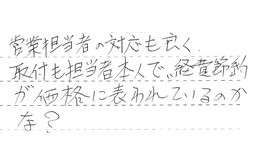 営業担当者の対応も良く、
取付も担当者本人で、経費節約
が価格に表われているのか
な?